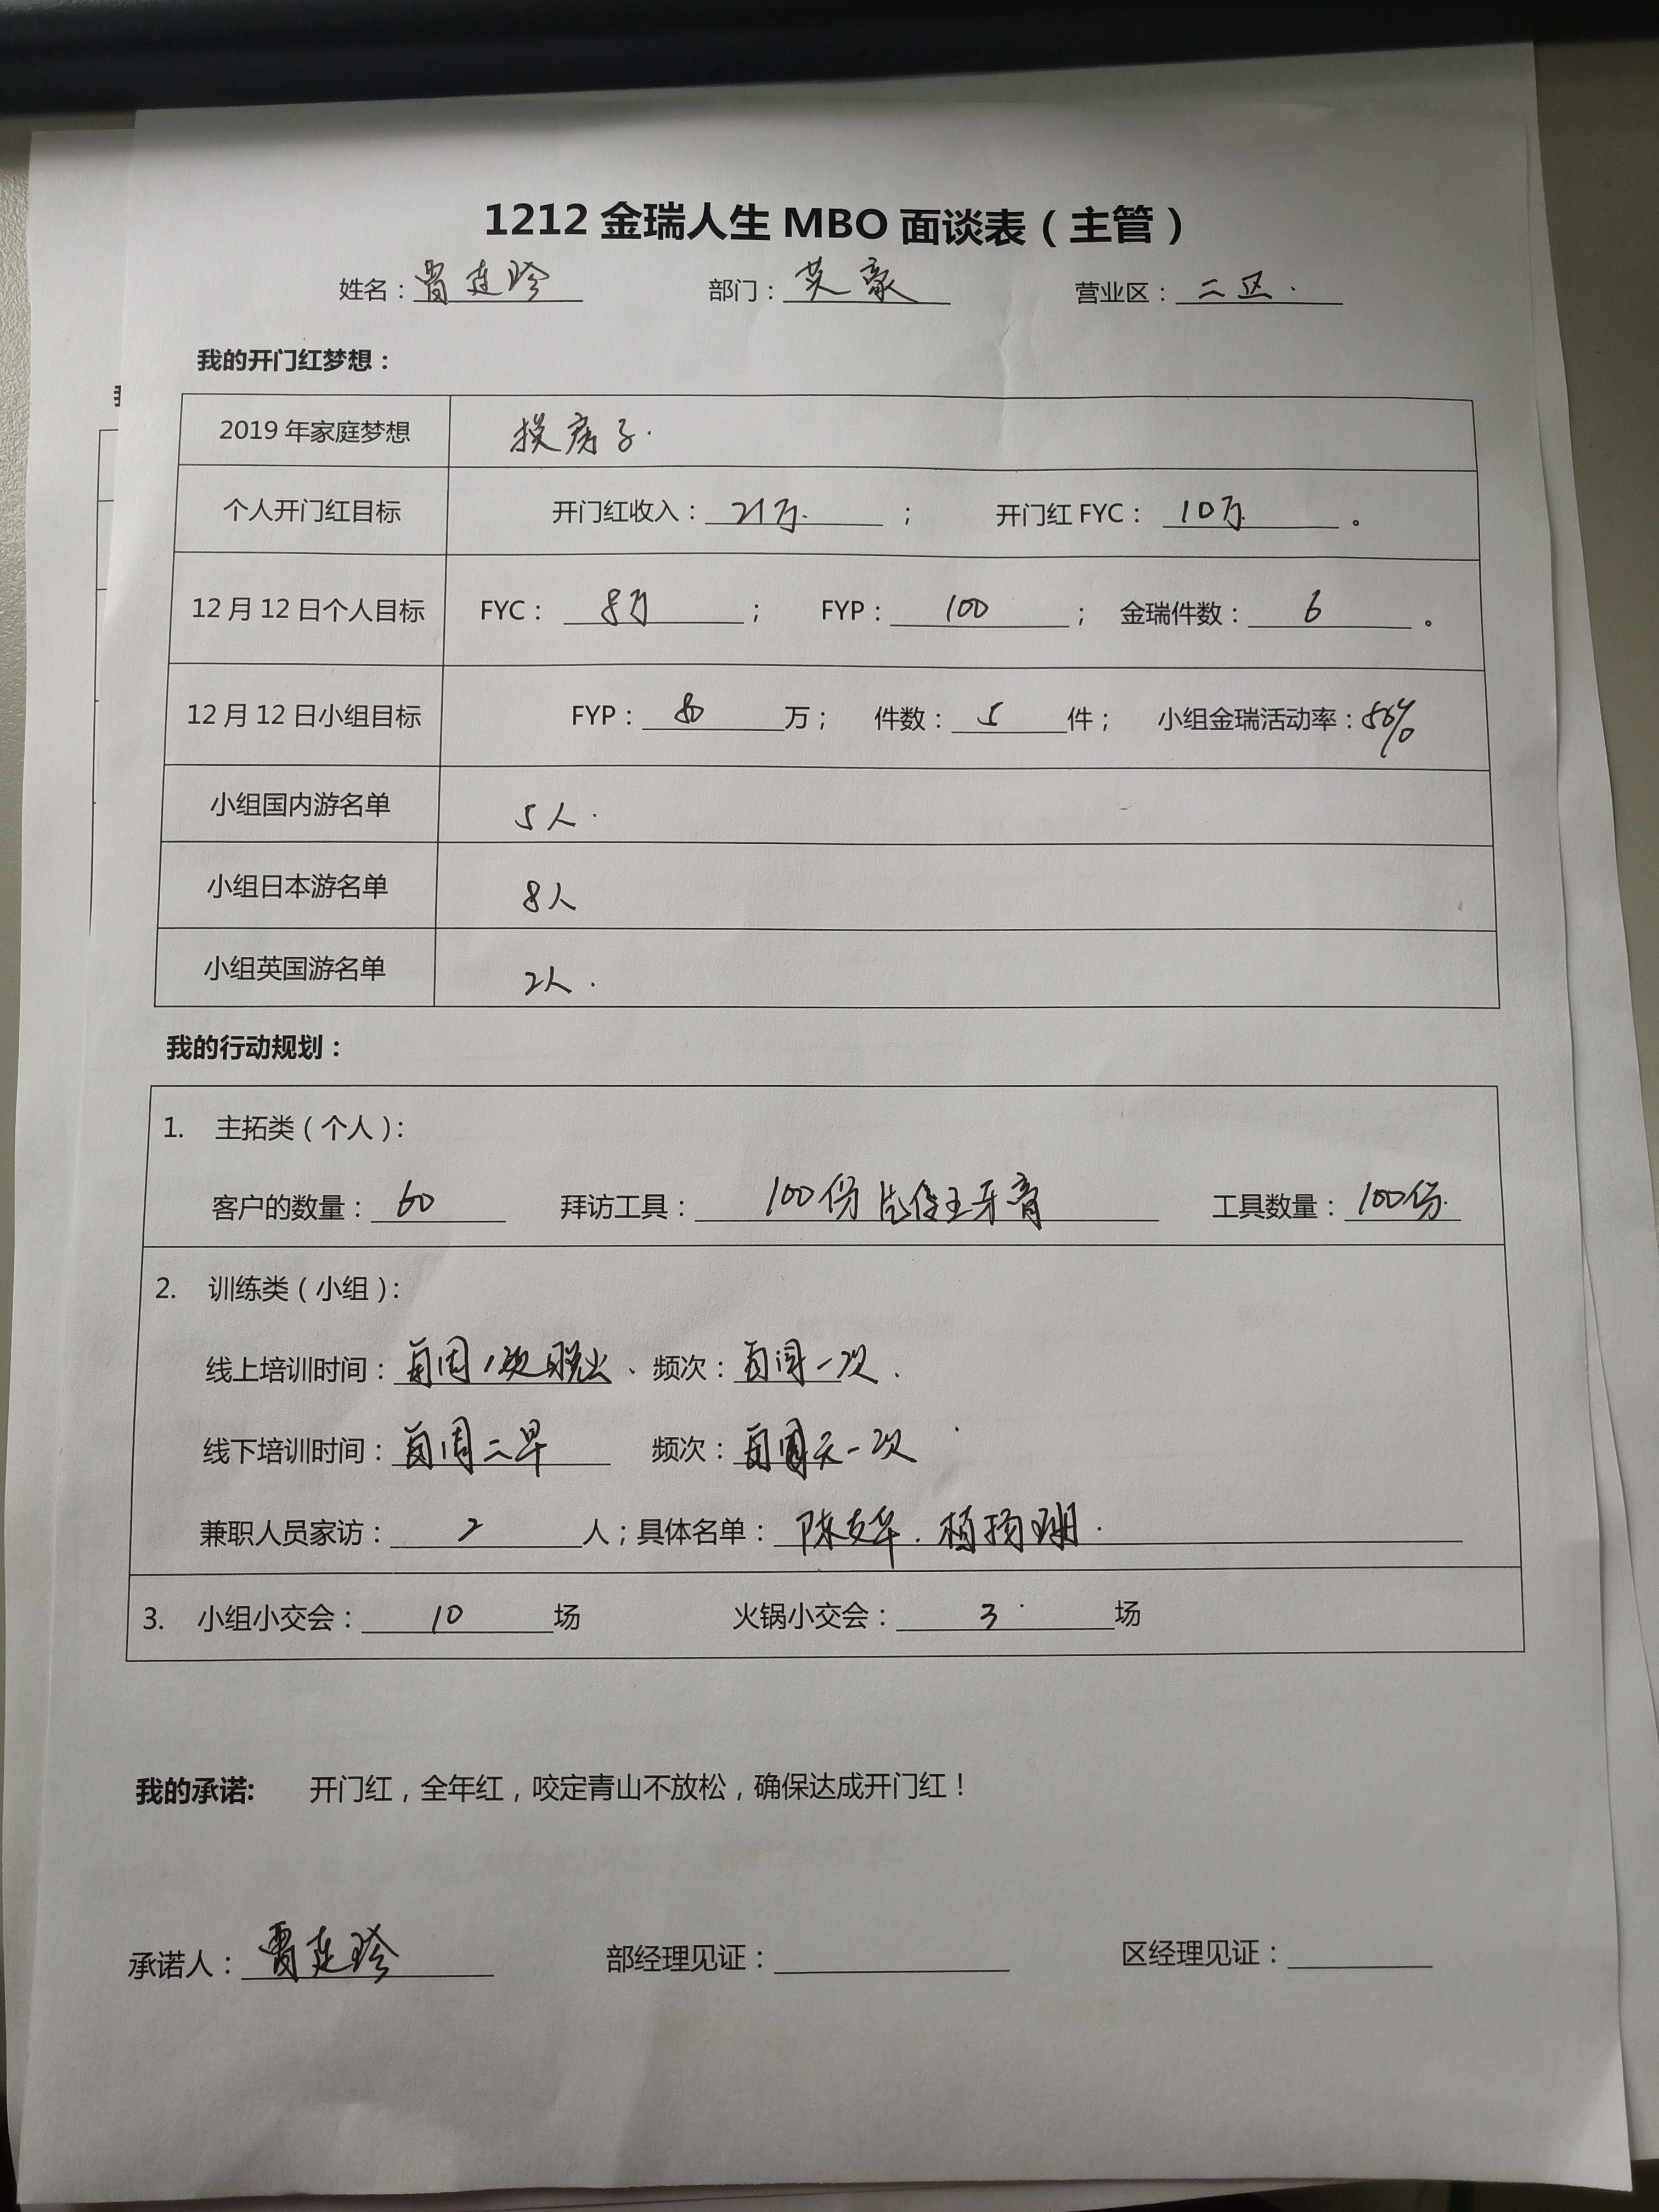 1212 金瑞人生 MBO 面谈表（主管）
姓名：曾连珍 部门：英豪 营业区：二区.
我的开门红梦想：
2019 年家庭梦想 换房子.
个人开门红目标 开门红收入：21万. ； 开门红 FYC：10万. 。
12 月 12 日个人目标 FYC：8万 ； FYP：100 ； 金瑞件数：6 。
12 月 12 日小组目标 FYP：80 万； 件数：5 件； 小组金瑞活动率：50%
小组国内游名单 5人.
小组日本游名单 8人
小组英国游名单 2人.
我的行动规划：
1. 主拓类（个人）：
客户的数量：60 拜访工具：100份 牙膏 工具数量：100份.
2. 训练类（小组）：
线上培训时间：每周1次晚上、 频次：每周一次.
线下培训时间：每周二早 频次：每天一次
兼职人员家访：2 人；具体名单：
3. 小组小交会：10 场 火锅小交会：3 场
我的承诺: 开门红，全年红，咬定青山不放松，确保达成开门红！
承诺人：曾连珍 部经理见证： 区经理见证：